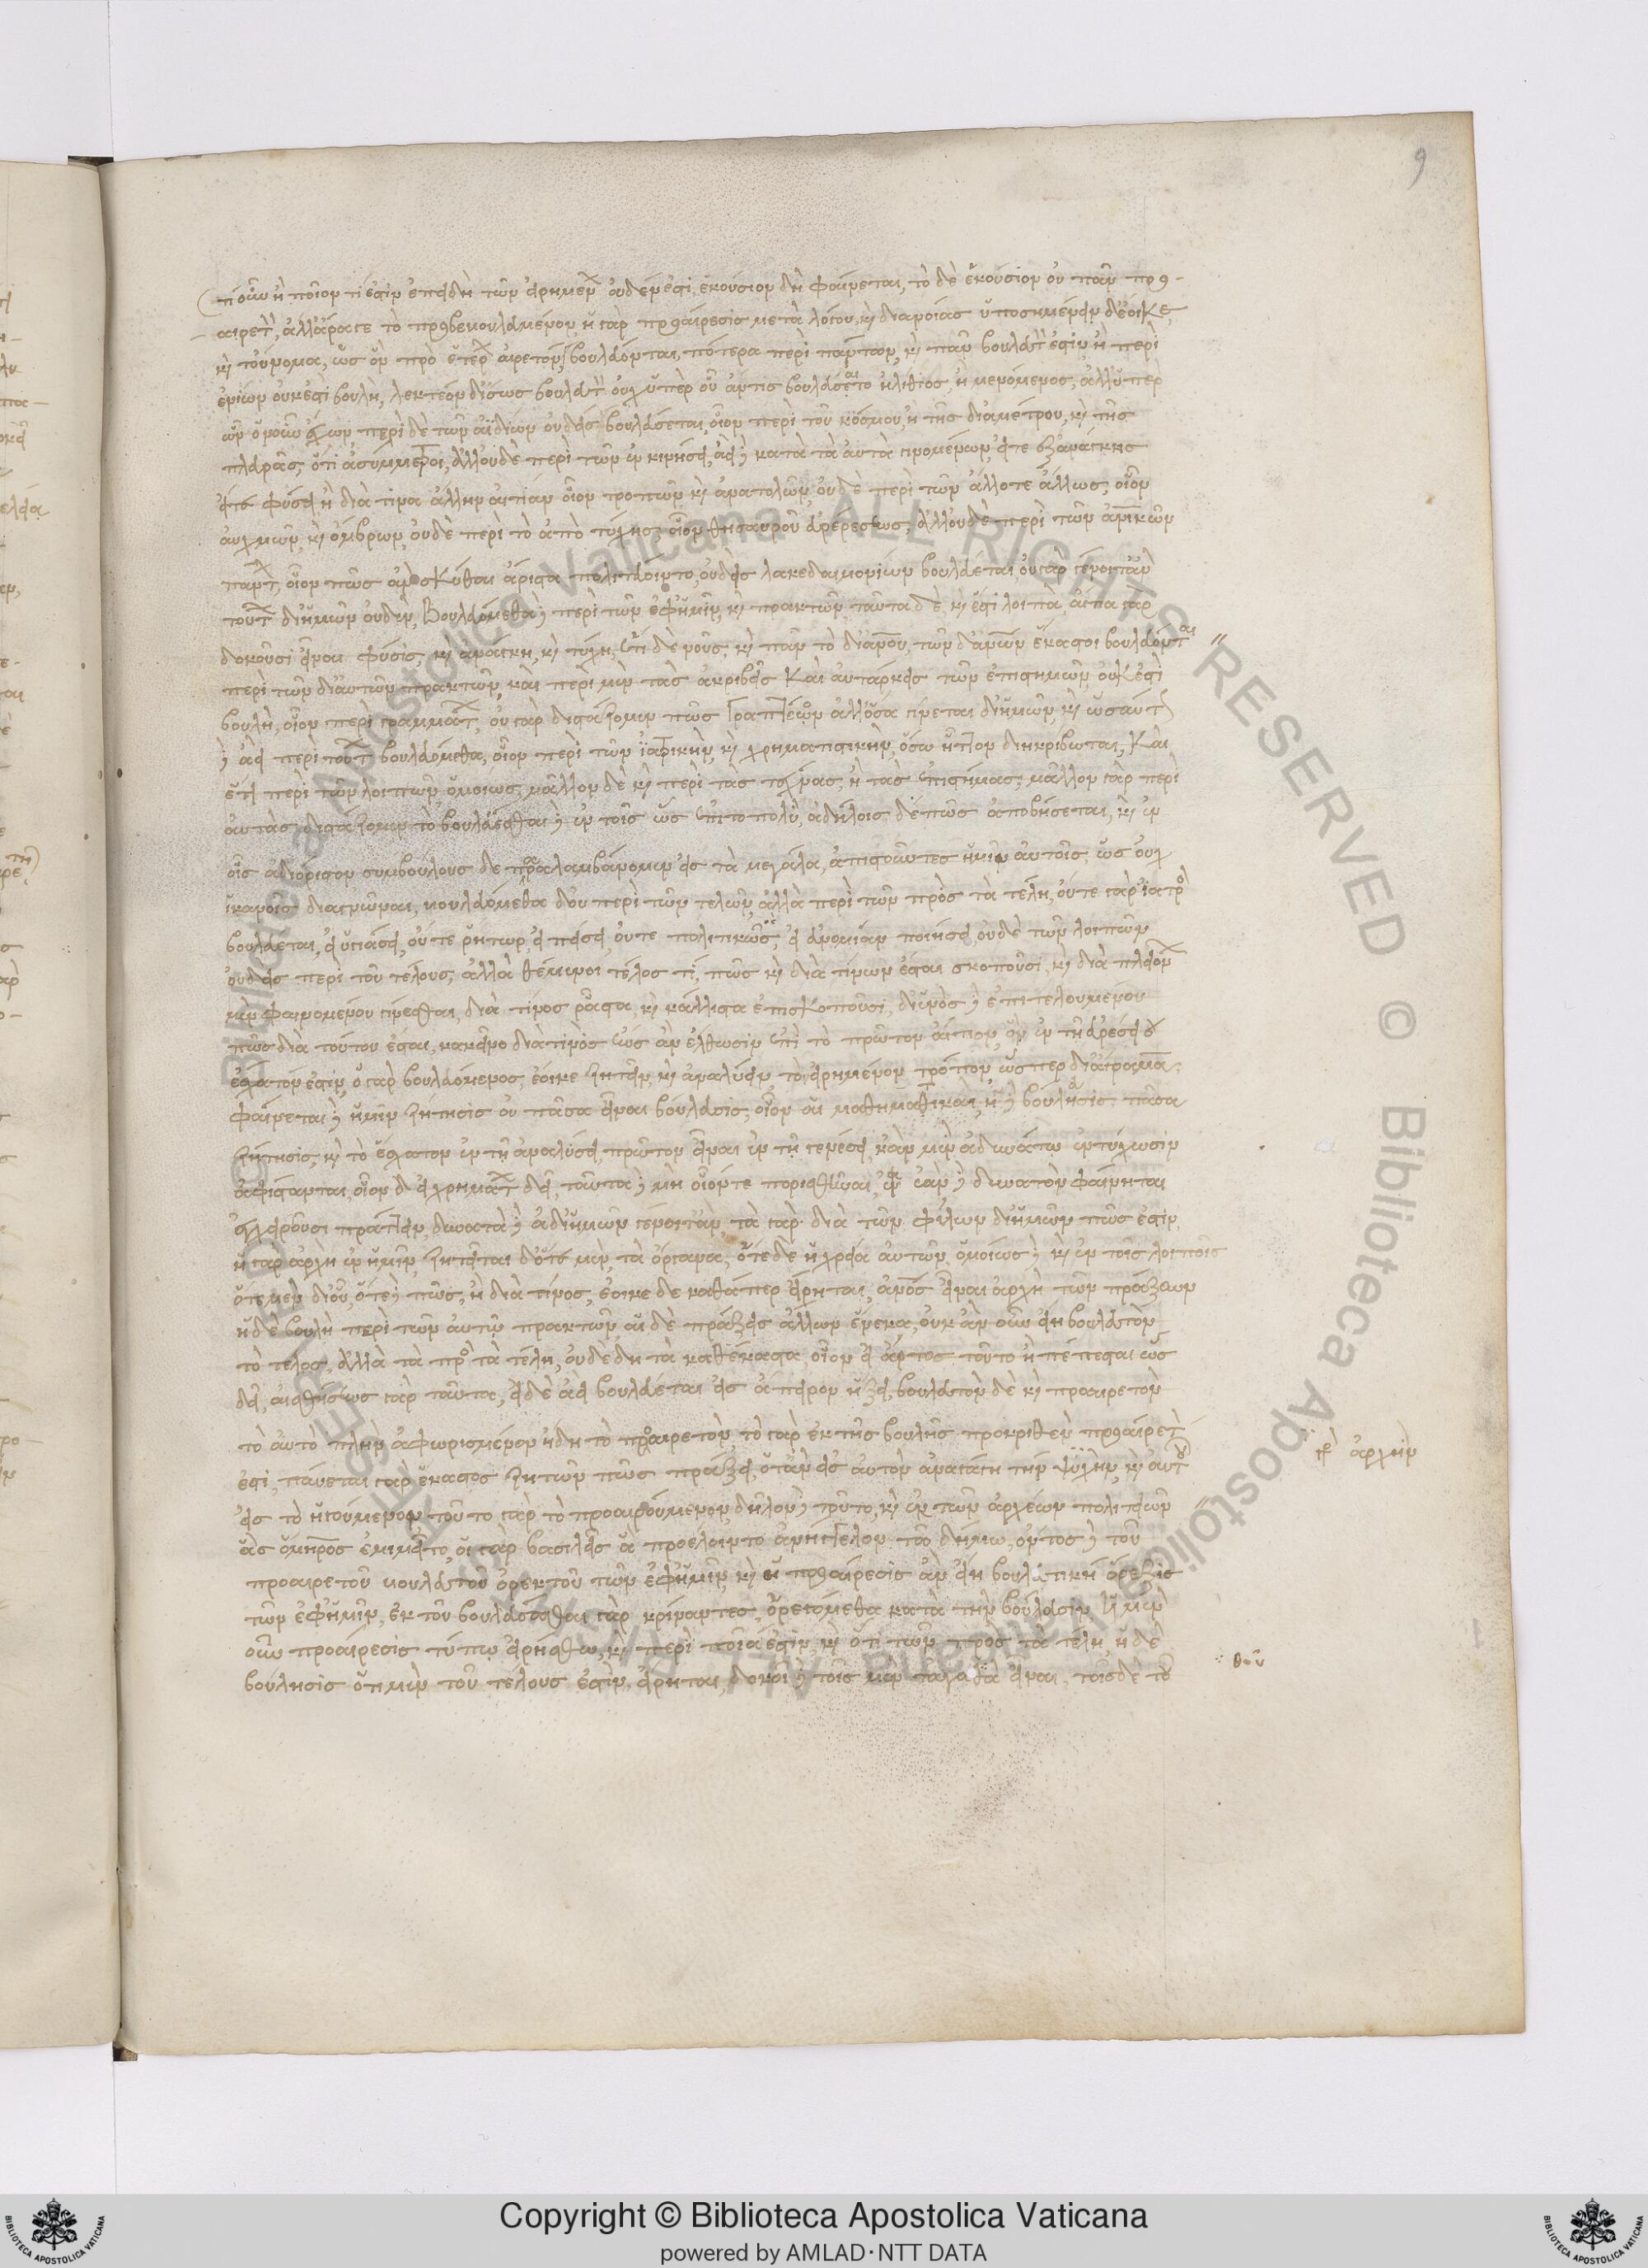 τί οὖν ἢ ποῖόν τί ἐστιν ἐπειδὴ τῶν εἰρημένων οὐδέν ἐστι, ἑκούσιον δὴ φαίνεται, τὸ δὲ ἑκούσιον οὐ πᾶν προ-
αιρετὸν, ἀλλ' ἆρά γε τὸ προβεβουλευμένον, ἡ γὰρ προαίρεσις μετὰ λόγου, καὶ διανοίας ὑποσημαίνειν δ' ἔοικε,
καὶ τοὔνομα, ὡς ὂν πρὸ ἑτέρων αἱρετόν, βουλεύονται, πότερα περὶ πάντων, καὶ πᾶν βουλευτόν ἐστιν ἢ περὶ
ἐνίων οὐκ ἔστι βουλή, λεκτέον δ' ἴσως βουλευτὸν οὐχ ὑπὲρ οὗ ἄν τις βουλεύσαιτο ἠλίθιος, ἢ μαινόμενος, ἀλλ' ὑπὲρ
ὧν ὁ νοῦν ἔχων περὶ δὲ τῶν ἀϊδίων οὐδεὶς βουλεύσεται, οἷον περὶ τοῦ κόσμου, ἢ τῆς διαμέτρου, καὶ τῆς
πλευρᾶς, ὅτι ἀσύμμετροι, ἀλλ' οὐδὲ περὶ τῶν ἐν κινήσει, ἀεὶ δὲ κατὰ τὰ αὐτὰ γινομένων, εἴτε ἐξ ἀνάγκης
εἴτε φύσει ἢ διά τινα ἄλλην αἰτίαν οἷον τροπῶν καὶ ἀνατολῶν, οὐδὲ περὶ τῶν ἄλλοτε ἄλλως, οἷον
αὐχμῶν, καὶ ὄμβρων, οὐδὲ περὶ τὸ ἀπὸ τύχης, οἷον θησαυροῦ εὑρέσεως, ἀλλ' οὐδὲ περὶ τῶν ἀνθρωπικῶν
πάντων, οἷον πῶς ἂν σκύθαι ἄριστα πολιτεύοιντο, οὐδεὶς λακεδαιμονίων βουλεύεται, οὐ γὰρ γένοιτ' ἂν
τούτων δι' ἡμῶν οὐδέν, Βουλευόμεθα δὲ περὶ τῶν ἐφ' ἡμῖν, καὶ πρακτῶν, ταῦτα δὲ καὶ ἔστι λοιπὰ, αἴτια γὰρ
δοκοῦσι εἶναι φύσις, καὶ ἀνάγκη, καὶ τύχη, ἔτι δὲ νοῦς, καὶ πᾶν τὸ δι' ἀνθρώπου, τῶν δ' ἀνθρώπων ἕκαστοι βουλεύονται
περὶ τῶν δι' αὐτῶν πρακτῶν, καὶ περὶ μὲν τὰς ἀκριβεῖς Καὶ αὐτάρκεις τῶν ἐπιστημῶν, οὐκ ἔστι
βουλή, οἷον περὶ γραμμάτων, οὐ γὰρ διστάζομεν πῶς γραπτέον, ἀλλ' ὅσα γίνεται δι' ἡμῶν, καὶ ὡσαύτως
δὲ ἀεὶ περὶ τούτων βουλευόμεθα, οἷον περὶ τῶν ἰατρικὴν, καὶ χρηματιστικὴν, ὅσω ἧττον διηκρίβωται, Καὶ
ἔτι περὶ τῶν λοιπῶν ὁμοίως, μᾶλλον δὲ καὶ περὶ τὰς τέχνας, ἢ τὰς ἐπιστήμας, μᾶλλον γὰρ περὶ
αὐτὰς διστάζομεν, τὸ βουλεύεσθαι δὲ ἐν τοῖς ὡς ἐπιτοπολύ, ἀδήλοις δὲ πῶς ἀποβήσεται, καὶ ἐν
οἷς ἀδιόριστον συμβούλους δὲ προσλαμβάνομεν εἰς τὰ μεγάλα, ἀπιστοῦντες ἡμῖν αὐτοῖς, ὡς οὐχ
ἱκανοῖς διαγνῶναι, βουλευόμεθα δ' οὐ περὶ τῶν τελῶν, ἀλλὰ περὶ τῶν πρὸς τὰ τέλη, οὔτε γὰρ ἰατρὸς
βουλεύεται, εἰ ὑγιάσει, οὔτε ῥήτωρ, εἰ πείσει, οὔτε πολιτικὸς, εἰ εὐνομίαν ποιήσει οὐδὲ τῶν λοιπῶν
οὐδεὶς περὶ τοῦ τέλους, ἀλλὰ θέμενοι τέλος τί, πῶς καὶ διὰ τίνων ἔσται σκοποῦσι, καὶ διὰ πλειόνων
μὲν φαινομένου γίνεσθαι, διὰ τίνος ῥᾶστα, καὶ κάλλιστα ἐπισκοποῦσι, δι' ἑνὸς δὲ ἐπιτελουμένου
πῶς διὰ τούτου ἔσται, κἀκεῖνο διὰ τίνος ἕως ἂν ἔλθωσιν ἐπὶ τὸ πρῶτον αἴτιον, ὃ ἐν τῆ εὑρέσει
ἔσχατόν ἐστιν, ὁ γὰρ βουλευόμενος, ἔοικε ζητεῖν, καὶ ἀναλύειν, τὸν εἰρημένον τρόπον, ὥσπερ διάγραμμα
φαίνεται δὲ ἡμῖν ζήτησις οὐ πᾶσα εἶναι βούλευσις, οἷον αἱ μαθηματικαὶ, ἡ δὲ βούλευσις πᾶσα
ζήτησις, καὶ τὸ ἔσχατον ἐν τῆ ἀναλύσει, πρῶτον εἶναι ἐν τῆ γενέσει, κἂν μὲν ἀδυνάτω ἐντύχωσιν
ἀφίστανται, οἷον εἰ χρημάτων δεῖ, ταῦτα δὲ μὴ οἷόν τε πορισθῆναι, ἐὰν δὲ δυνατὸν φαίνηται
ἐγχειροῦσι πράττειν, δυνατὰ δὲ ἃ δι' ἡμῶν γένοιτ' ἂν, τὰ γὰρ διὰ τῶν φίλων δι' ἡμῶν πῶς ἐστιν,
ἡ γὰρ ἀρχὴ ἐν ἡμῖν, ζητεῖται δ' ὁτὲ μὲν, τὰ ὄργανα, ὁτὲ δὲ ἡ χρεία αὐτῶν ὁμοίως δὲ καὶ ἐν τοῖς λοιποῖς
ὁτὲ μὲν δι' οὗ, ὁτὲ δὲ πῶς, ἢ διὰ τίνος, ἔοικε δὲ καθάπερ εἴρηται, ἄνθρωπος εἶναι ἀρχὴ τῶν πράξεων
ἡ δὲ βουλὴ περὶ τῶν αὐτῶ πρακτῶν, αἱ δὲ πράξεις ἄλλων ἕνεκα, οὐκ ἂν οὖν εἴη βουλευτὸν
τὸ τέλος, ἀλλὰ τὰ πρὸς τὰ τέλη, οὐδὲ δὴ τὰ καθέκαστα, οἷον εἰ ἄρτος τοῦτο ἢ πέπεπται ὡς
δεῖ, αἰσθήσεως γὰρ ταῦτα, εἰ δὲ ἀεὶ βουλεύεται εἰς ἄπειρον ἥξει, βουλευτὸν δὲ καὶ προαιρετὸν
τὸ αὐτὸ πλὴν ἀφωρισμένον ἤδη τὸ προαιρετὸν τὸ γὰρ ἐκ τῆς βουλῆς προκριθὲν προαιρετὸν
ἐστι, παύεται γὰρ ἕκαστος ζητῶν πῶς πράξει, ὅταν εἰς αὐτὸν ἀναγάγη τὴν ψυχὴν, καὶ αὐτοῦ
εἰς τὸ ἡγούμενον τοῦτο γὰρ τὸ προαιρούμενον, δῆλον δὲ τοῦτο, καὶ ἐκ τῶν ἀρχαίων πολιτειῶν
ἃς ὅμηρος ἐμιμεῖτο, οἱ γὰρ βασιλεῖς ἃ προέλοιντο ἀνήγγελλον τῶ δήμω, ὄντος δὲ τοῦ
προαιρετοῦ βουλευτοῦ ὀρεκτοῦ τῶν ἐφ' ἡμῖν, καὶ ἡ προαίρεσις ἂν εἴη βουλευτικὴ ὄρεξις
τῶν ἐφ' ἡμῖν, ἐκ τοῦ βουλεύσασθαι γὰρ κρίναντες, ὀρεγόμεθα κατὰ τὴν βούλευσιν, ἡ μὲν
οὖν προαίρεσις τύπω εἰρήσθω, καὶ περὶ ποῖά ἐστιν, καὶ ὅτι τῶν πρὸς τὰ τέλη ἡ δὲ
βούλησις ὅτι μὲν τοῦ τέλους ἐστὶν, εἴρηται, δοκεῖ δὲ τοῖς μὲν τἀγαθοῦ εἶναι, τοῖς δὲ τοῦ
ἀρχὴν
θοῦ
9
Copyright © Biblioteca Apostolica Vaticana
powered by AMLAD·NTT DATA